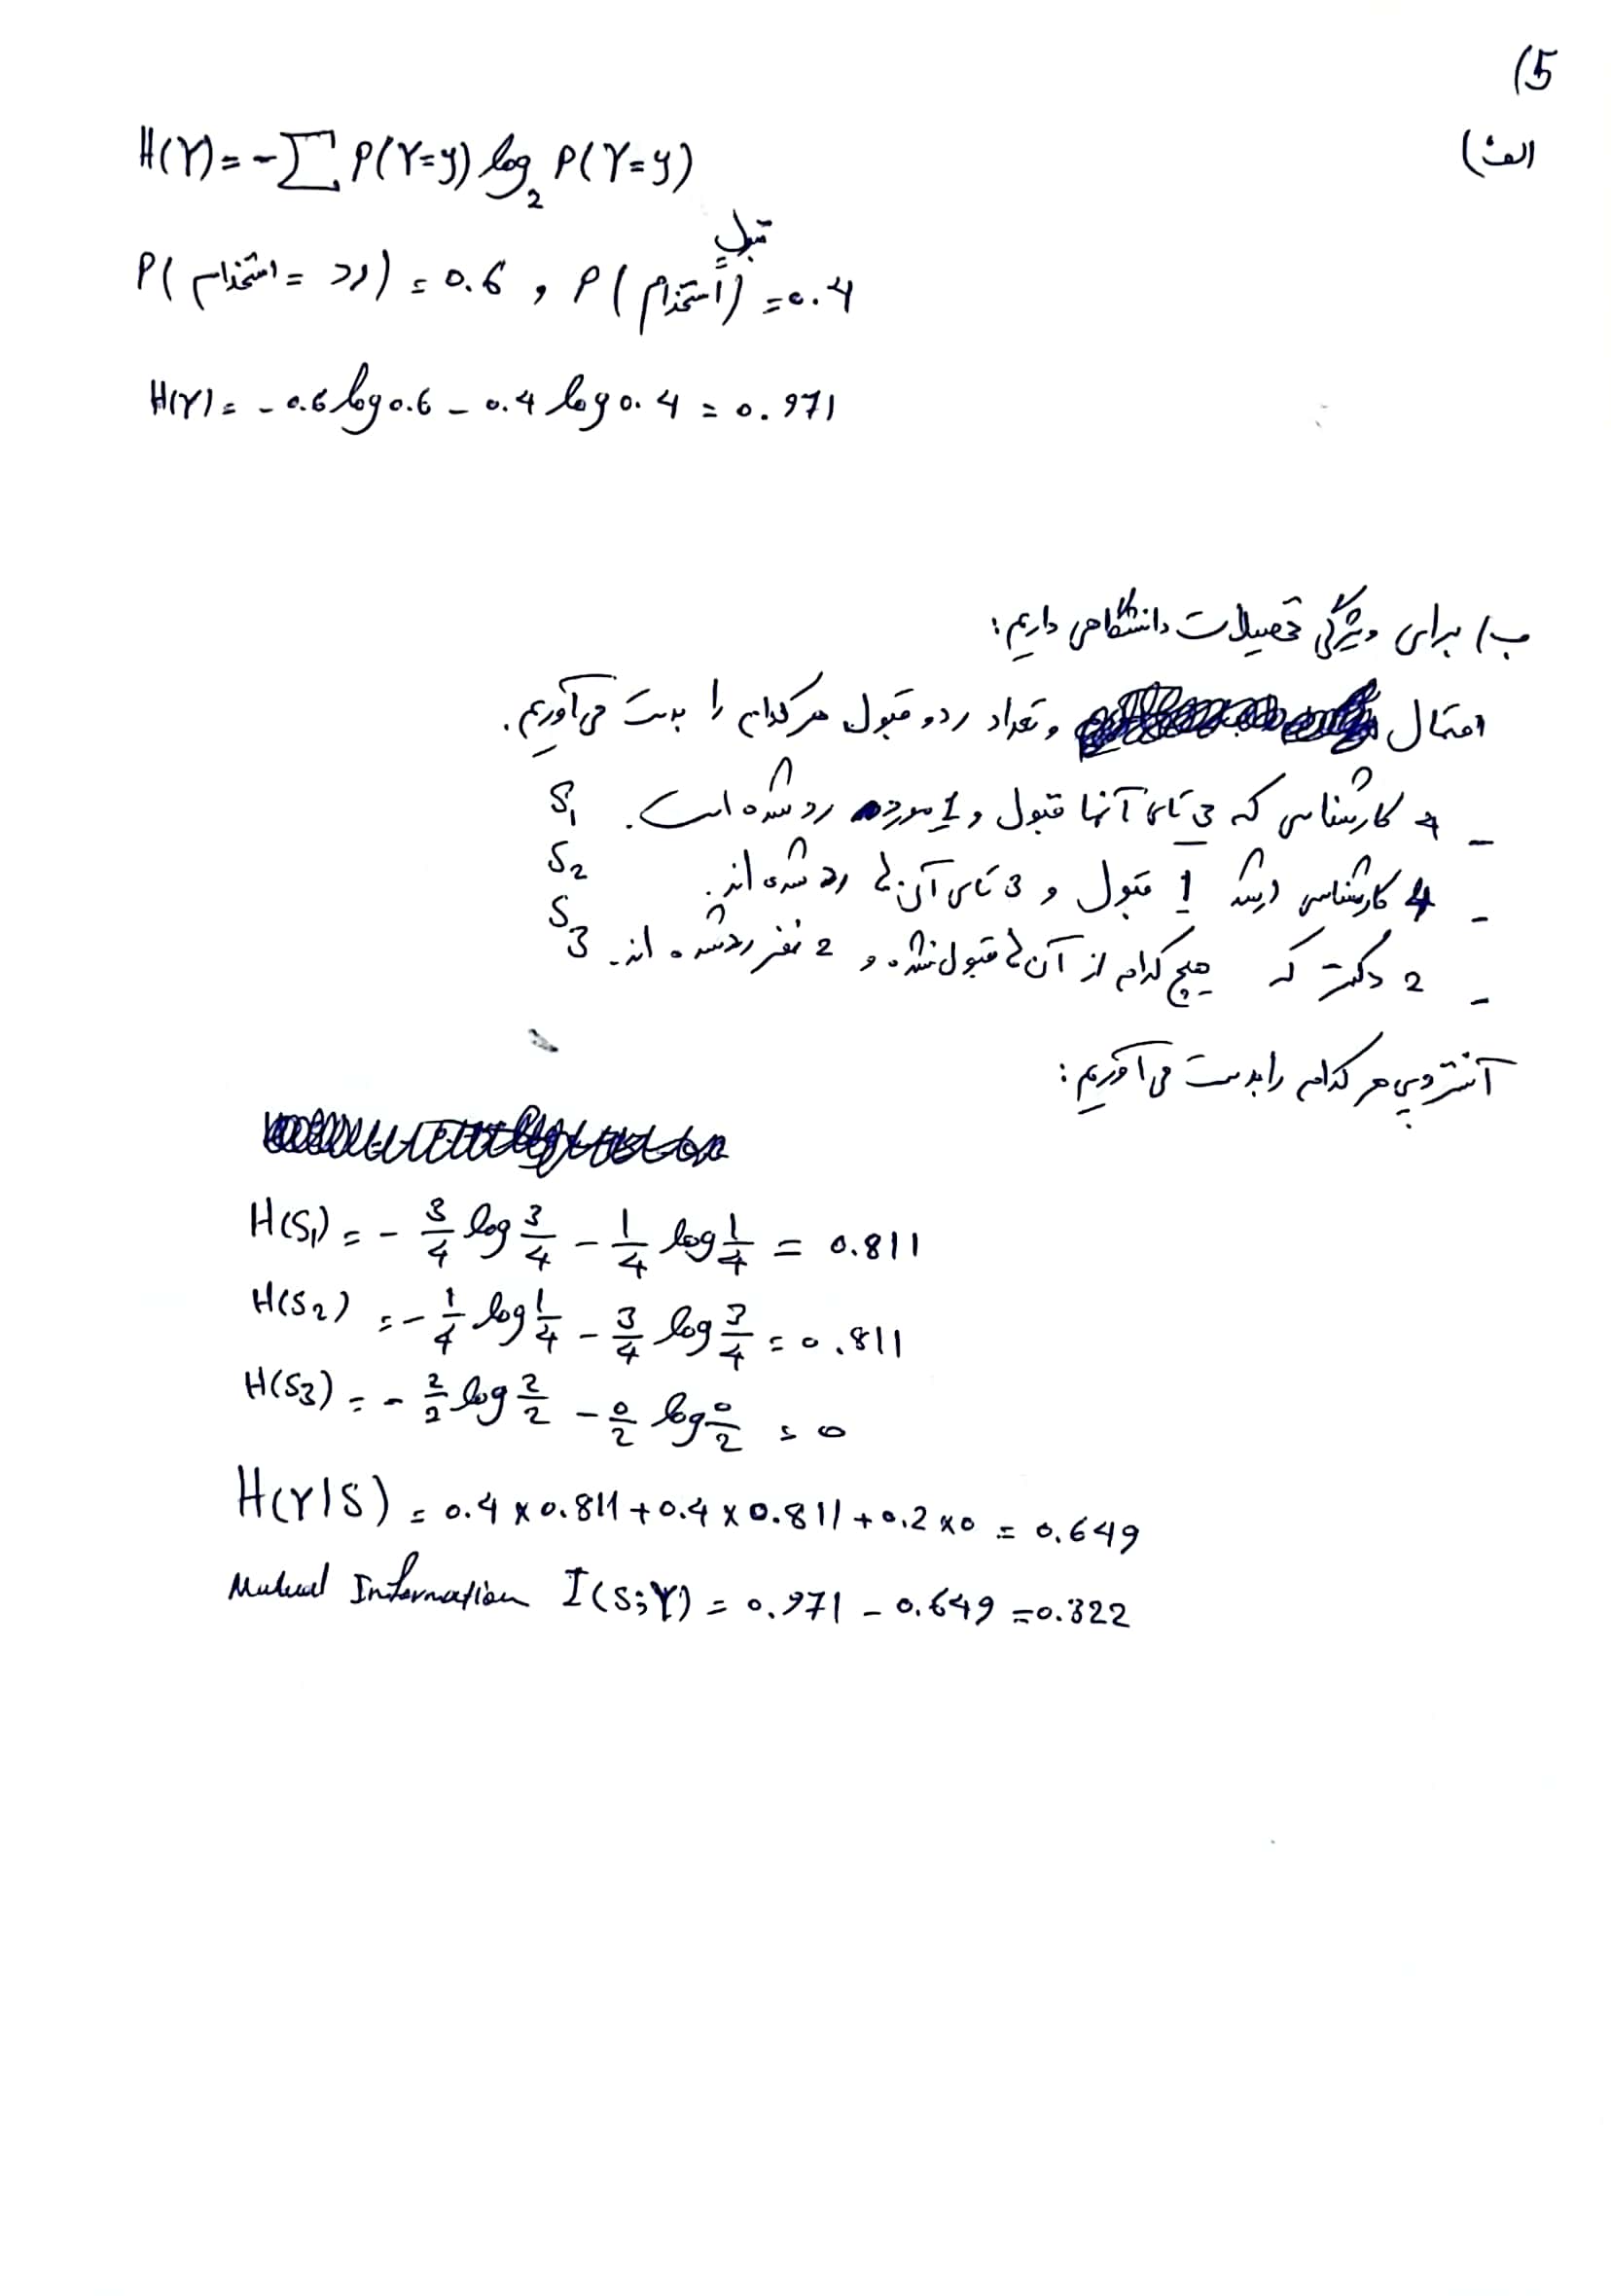 (5
الف)
H(Y) = -∑ P(Y=y) log₂ P(Y=y)
P(استخدام = رد) = 0.6 , P(استخدام = قبول) = 0.4
H(Y) = - 0.6 log 0.6 - 0.4 log 0.4 = 0.971
ب) برای ویژگی تحصیلات دانشگاهی داریم:
احتمال و تعداد رد و قبول هر کدام را بدست می‌آوریم.
- 4 کارشناسی که 3 تای آنها قبول و 1 مورد رد شده است. S₁
- 4 کارشناسی ارشد 1 قبول و 3 تای آن‌ها رد شده‌اند. S₂
- 2 دکتری که هیچ کدام از آن‌ها قبول نشده و 2 نفر رد شده‌اند. S₃
آنتروپی هر کدام را بدست می‌آوریم:
H(S₁) = - 3/4 log 3/4 - 1/4 log 1/4 = 0.811
H(S₂) = - 1/4 log 1/4 - 3/4 log 3/4 = 0.811
H(S₃) = - 2/2 log 2/2 - 0/2 log 0/2 = 0
H(Y|S) = 0.4 × 0.811 + 0.4 × 0.811 + 0.2 × 0 = 0.649
Mutual Information I(S;Y) = 0.971 - 0.649 = 0.322